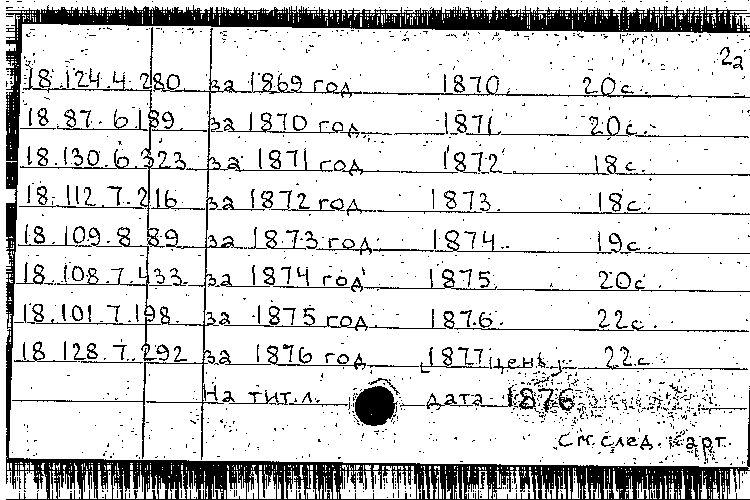 2а
18.124.4.280 за 1869 год 1870. 20с.
18.87.6.189 за 1870 год 1871. 20с.
18.130.6.323 за 1871 год 1872 18с.
18.112.7.216 за 1872 год 1873. 18с.
18.109.8.89 за 1873 год 1874. 19с.
18.108.7.433 за 1874 год 1875 20с.
18.101.7.198 за 1875 год 1876. 22с.
18.128.7.292 за 1876 год [1877 ценз.] 22с
На тит.л. дата 1876
См.след.карт.